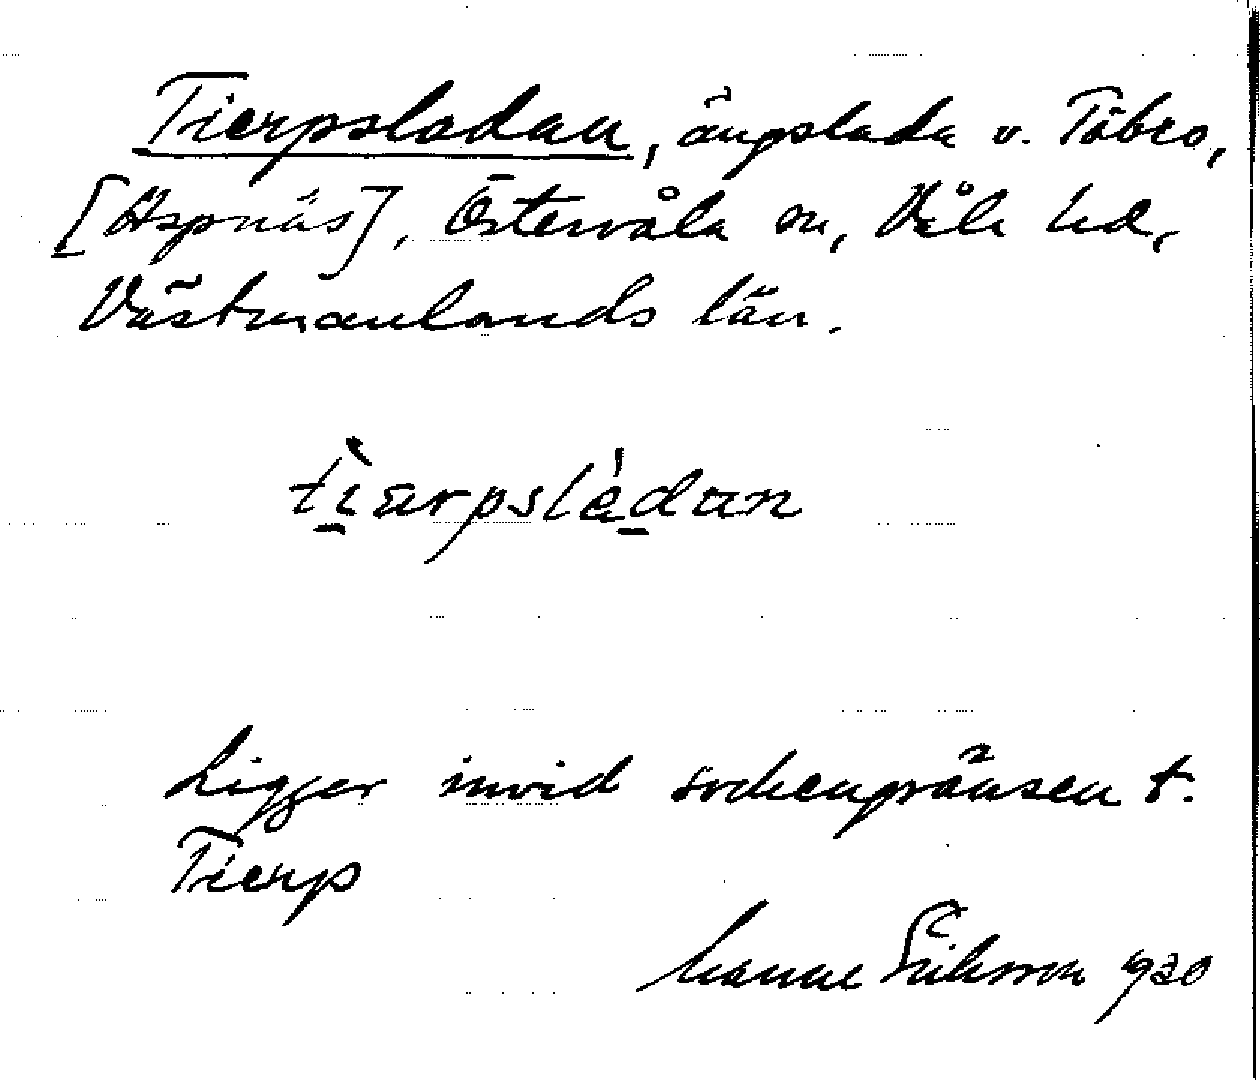 Tierpsladan, ängslada v. Töbro,
[Aspnäs], Östervåla sn, Våla hd,
Västmanlands län.
tìɑrpslàdɑn
Ligger invid sockengränsen t.
Tierp
Manne Eriksson 1930